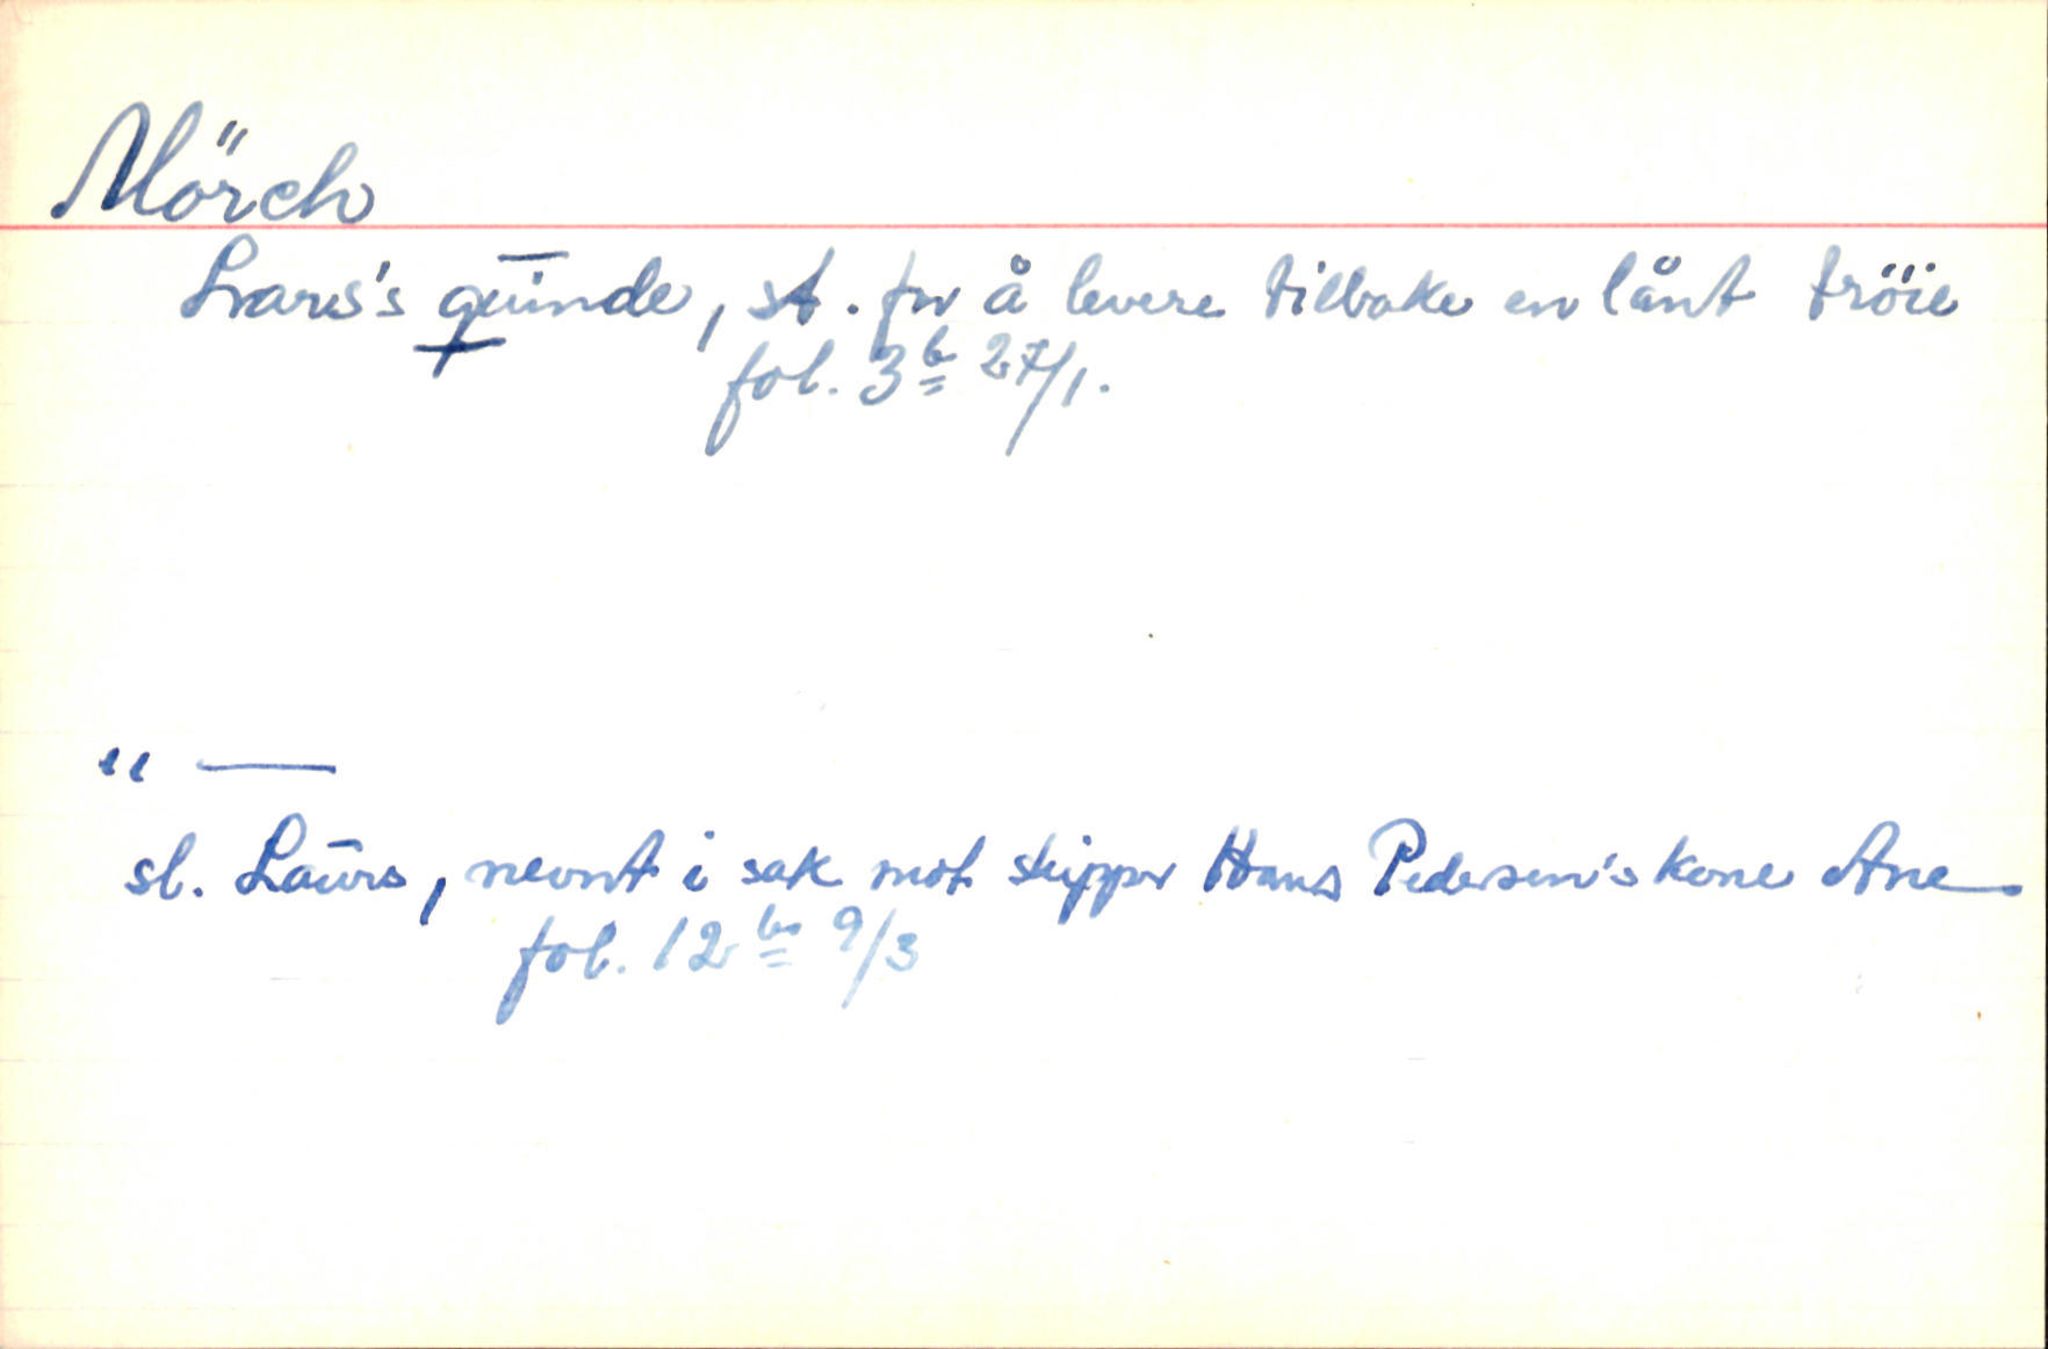 Mörch
Lars's quinde, st. for å levere tilbake en lånt tröie
fol. 3b 27/1.
" —
sl. Laurs, nevnt i sak mot skipper Hans Pedersen's kone Ane
fol. 12b 9/3